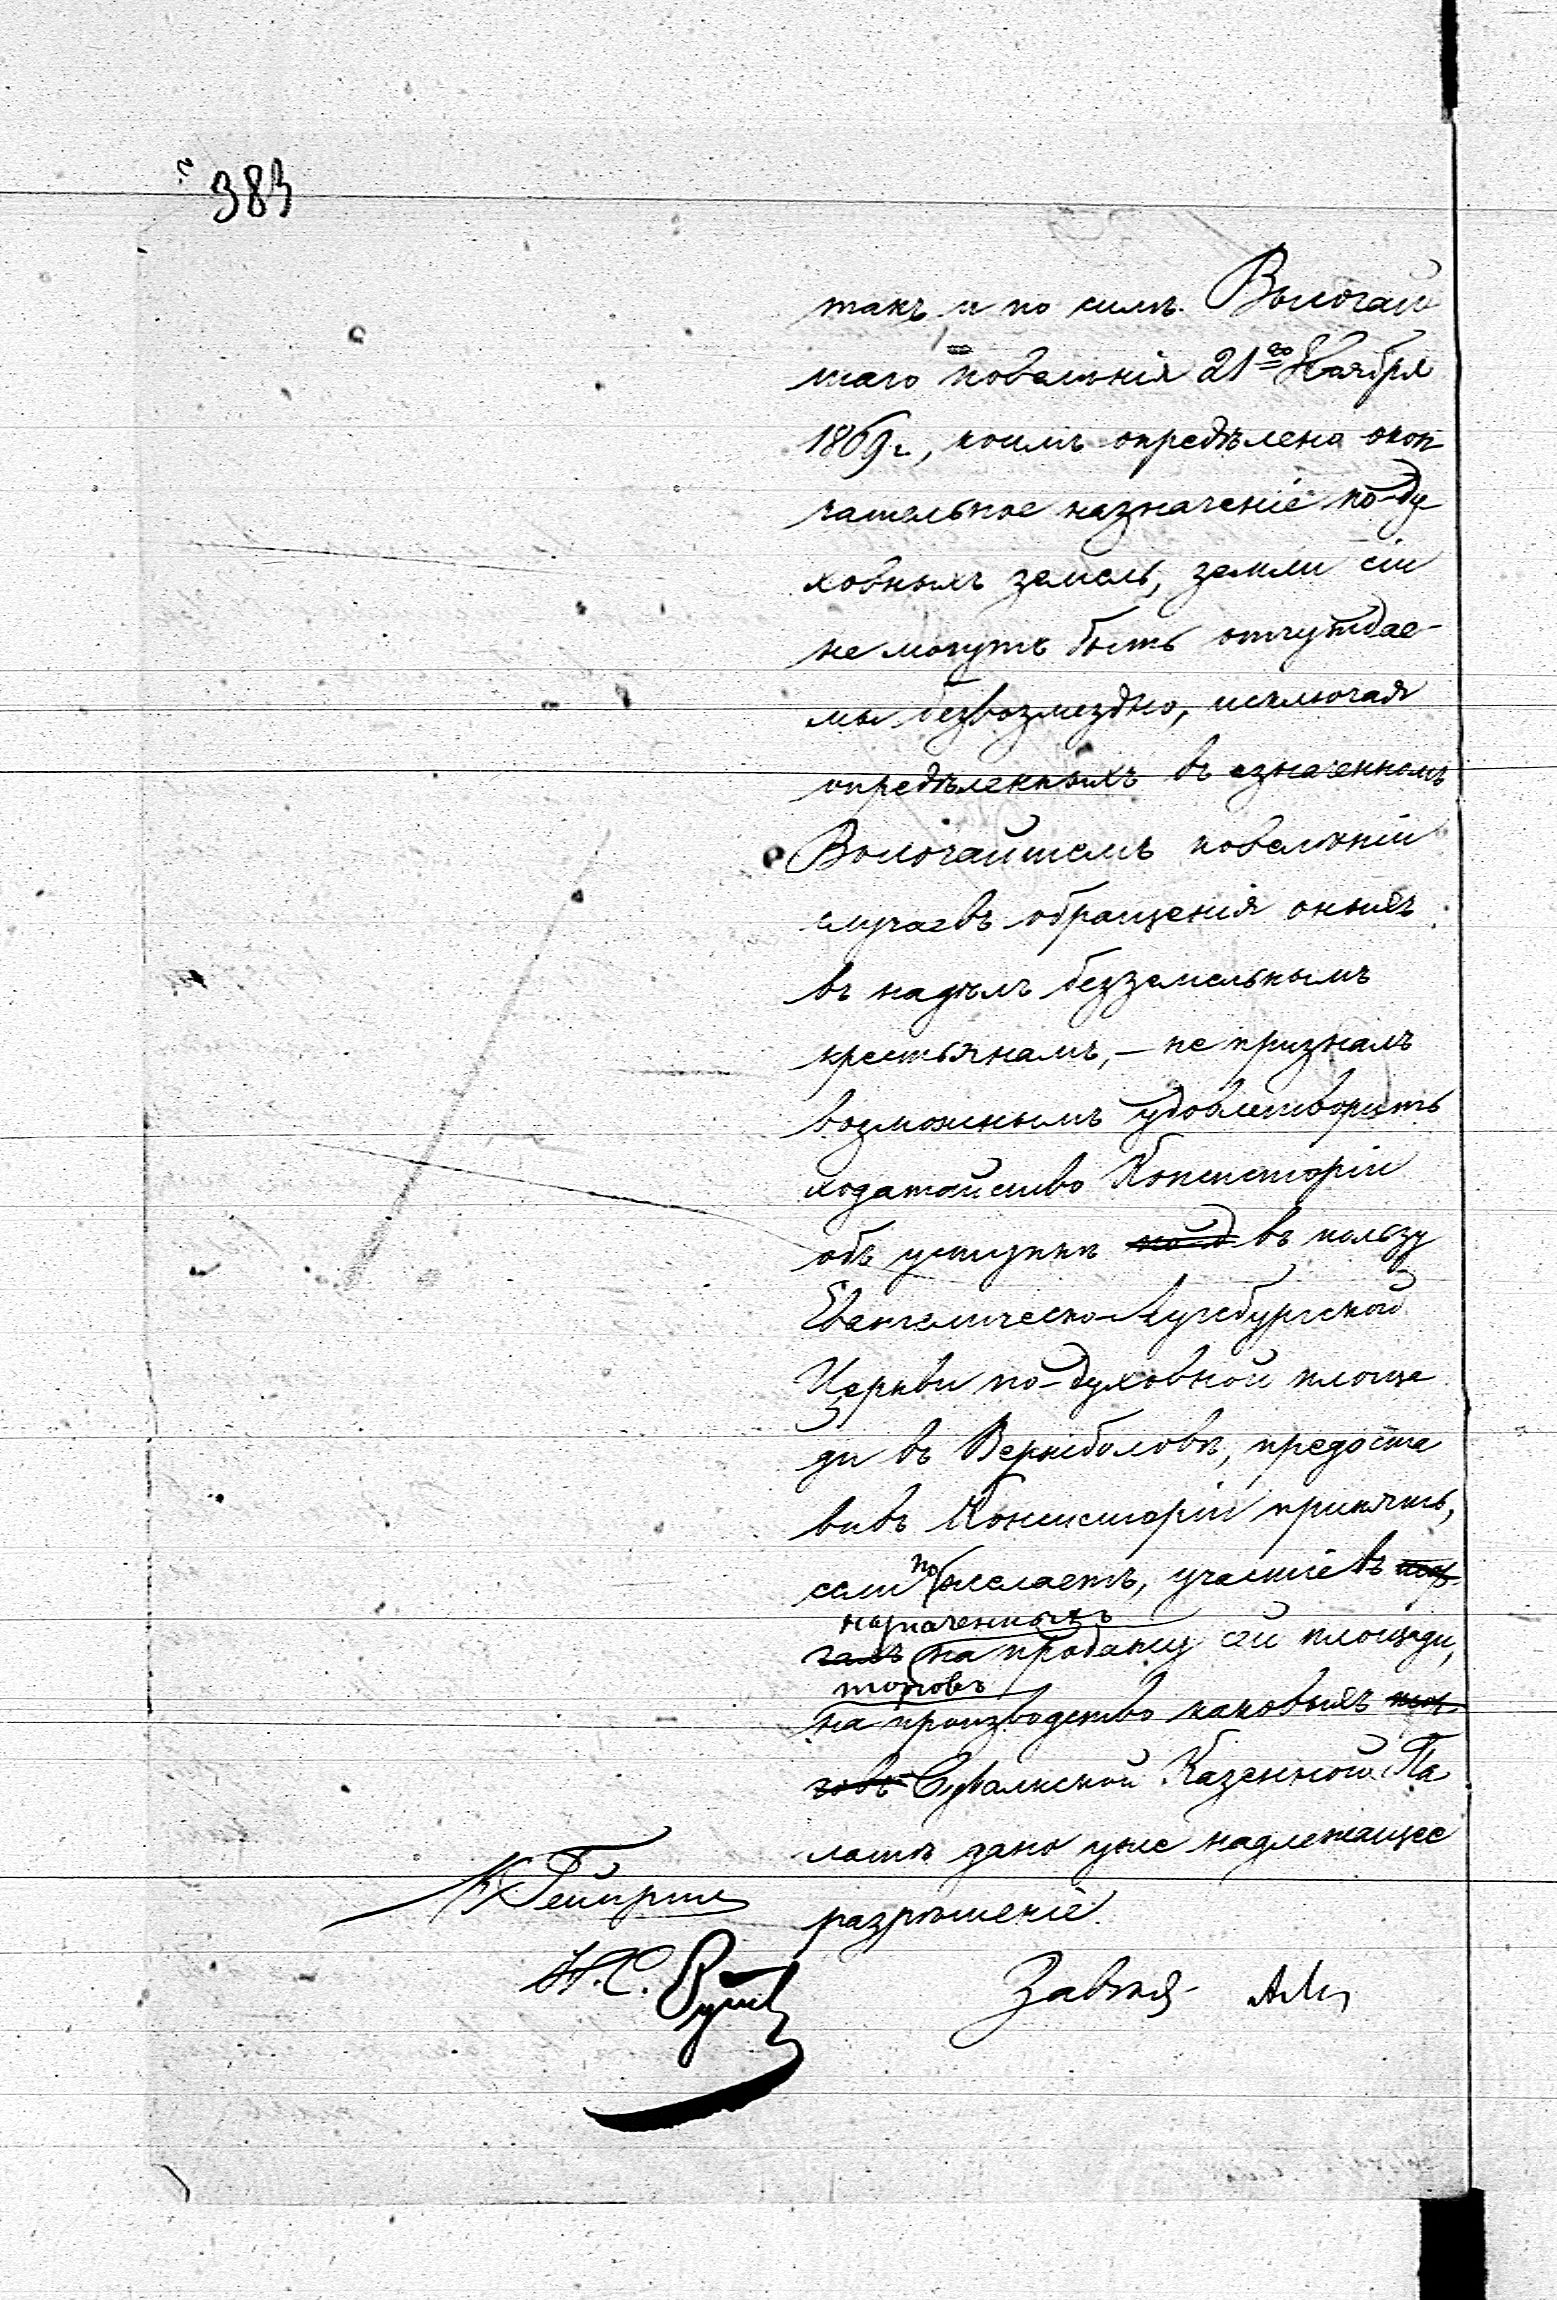 383
такъ и по силѣ Высочай
шаго повелѣнія 21го Ноября
1869 г., коимъ опредѣлено окон
чательное назначеніе по-ду
ховныхъ земель, земли сіи
не могутъ быть отчуждае-
мы безвозмездно, исключая
опредѣленныхъ въ означенномъ
Высочайшемъ повелѣніи
случаевъ обращенія оныхъ
въ надѣлъ безземельнымъ
крестьянамъ, – не призналъ
возможнымъ удовлетворить
ходатайство Консисторіи
объ уступкѣ въ пользу
Евангелическо-Аугсбургской
Церкви по-духовной площа
ди въ Вержболовѣ, предоста
вивъ Консисторіи принять,
если пожелаетъ, участіе въ
назначенныхъ
на продажу сей площади,
торговъ
на производство каковыхъ
Сувалкской Казенной Па
латѣ дано уже надлежащее
разрѣшеніе.
Н. С.